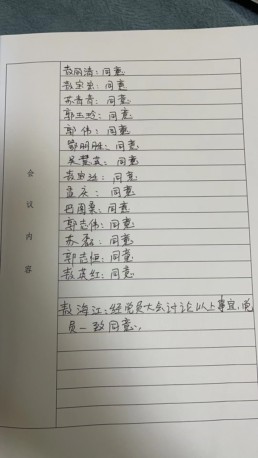 袁丽清：同意
袁宝宏：同意
苏青青：同意
郭玉玲：同意
郭伟：同意
郭丽胜：同意
吴慧英：同意
同意
孟庆：同意
同意
郭志伟：同意
苏磊：同意
郭志恒：同意
袁英红：同意
袁海江：经党员大会讨论以上事宜，党
员一致同意。
会议内容